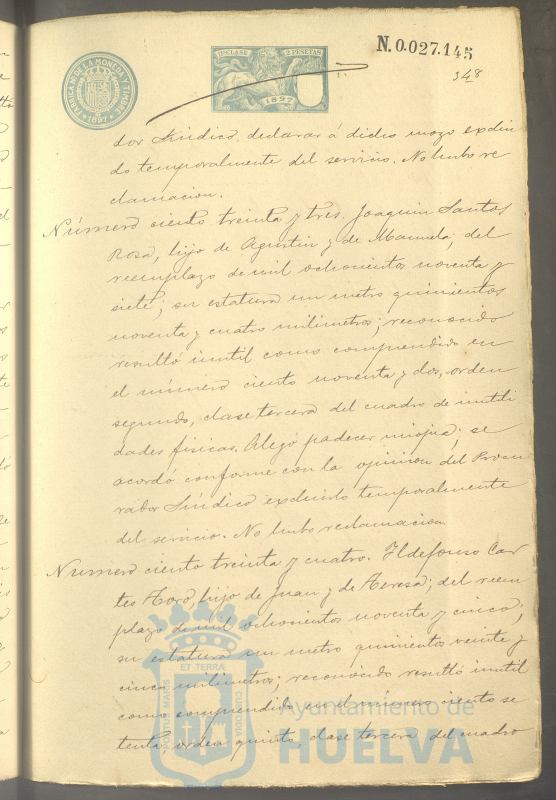 FABRICA N. DE LA MONEDA Y TIMBRE
1897
11ª CLASE 2 PESETAS
1897
N.0.027.145
348
dor Síndico, declarar á dicho mozo exclui
do temporalmente del servicio. No hubo re
clamacion.
Número ciento treinta y tres. Joaquin Santos
Rosa, hijo de Agustin y de Manuela; del
reemplazo de mil ochocientos noventa y
siete; su estatura un metro quinientos
noventa y cuatro milimetros; reconocido
resultó inutil como comprendido en
el número ciento noventa y dos, orden
segundo, clase tercera del cuadro de inutili
dades fisicas. Alegó padecer miopia; se
acordó conforme con la opinion del Procu
rador Síndico excluirlo temporalmente
del servicio. No hubo reclamacion.
Número ciento treinta y cuatro. Ildefonso Cor
tes Toro, hijo de Juan y de Teresa; del reem
plazo de mil ochocientos noventa y cinco;
su estatura un metro quinientos veinte y
cinco milimetros; reconocido resultó inutil
como comprendido en el número ciento se
tenta, orden quinto, clase tercera del cuadro
PORTUS MARIS ET TERRÆ CUSTODIA
Ayuntamiento de
HUELVA